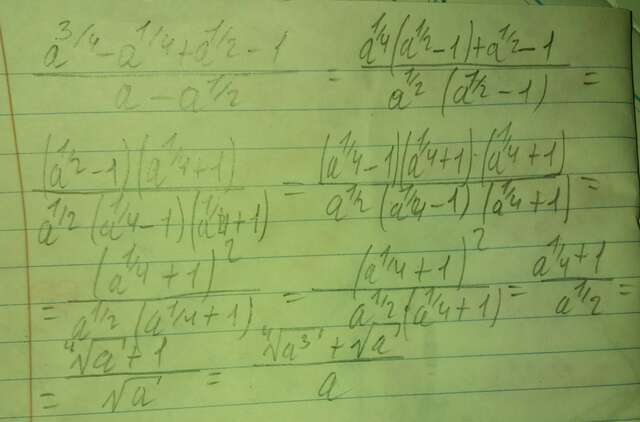 (a^{3/4} - a^{1/4} + a^{1/2} - 1)/(a - a^{1/2}) = (a^{1/4}(a^{1/2} - 1) + a^{1/2} - 1)/(a^{1/2} (a^{1/2} - 1)) =
((a^{1/2} - 1)(a^{1/4} + 1))/(a^{1/2} (a^{1/4} - 1)(a^{1/4} + 1)) = ((a^{1/4} - 1)(a^{1/4} + 1) · (a^{1/4} + 1))/(a^{1/2} (a^{1/4} - 1)(a^{1/4} + 1)) =
= (a^{1/4} + 1)^2/(a^{1/2} (a^{1/4} + 1)) = (a^{1/4} + 1)^2/(a^{1/2} (a^{1/4} + 1)) = (a^{1/4} + 1)/a^{1/2} =
= (∜a + 1)/√a = (∜a³ + √a)/a